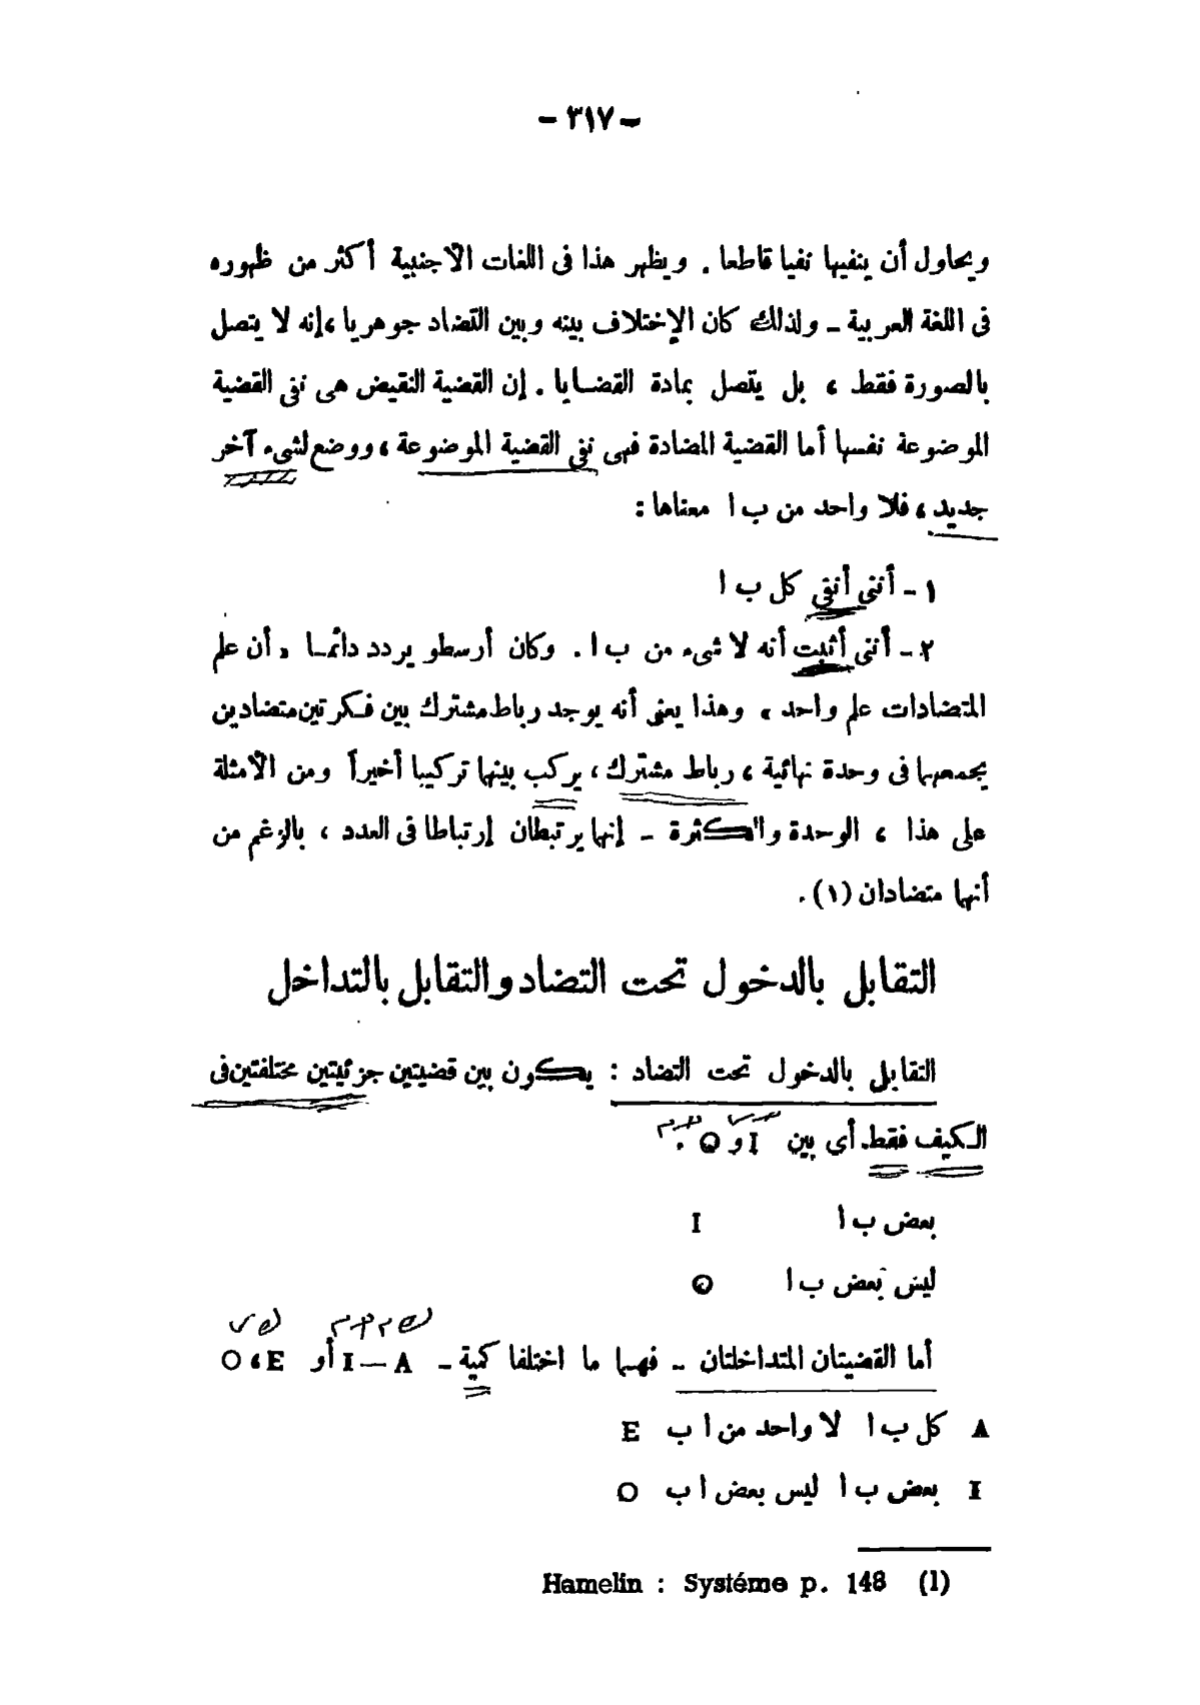 - ٣١٧ -
ويحاول أن ينفيها نفيا قاطعا . ويظهر هذا فى اللغات الأجنبية أكثر من ظهوره
فى اللغة العربية - ولذلك كان الإختلاف بينه وبين التضاد جوهريا ، إنه لا يتصل
بالصورة فقط ، بل يتصل بمادة القضايا . إن القضية النقيض هى نفى القضية
الموضوعة نفسها أما القضية المضادة فهى نفى القضية الموضوعة ، ووضع لشىء آخر
جديد ، فلا واحد من ب ا معناها :
١ - أننى أنفى كل ب ا
٢ - أننى أثبت أنه لا شىء من ب ا . وكان أرسطو يردد دائما « أن علم
المتضادات علم واحد » وهذا يعنى أنه يوجد رباط مشترك بين فكرتين متضادين
يجمعهما فى وحدة نهائية ، رباط مشترك ، يركب بينها تركيبا أخيراً ومن الأمثلة
على هذا ، الوحدة والكثرة - إنها يرتبطان إرتباطا فى العدد ، بالرغم من
أنها متضادان (١) .
التقابل بالدخول تحت التضاد والتقابل بالتداخل
التقابل بالدخول تحت التضاد : يكون بين قضيتين جزئيتين مختلفتين فى
الكيف فقط أى بين I و O .
بعض ب ا I
ليس بعض ب ا O
أما القضيتان المتداخلتان - فهما ما اختلفا كمية - I — A أو O ، E
A كل ب ا لا واحد من ا ب E
I بعض ب ا ليس بعض ا ب O
Hamelin : Systéme p. 148 (1)